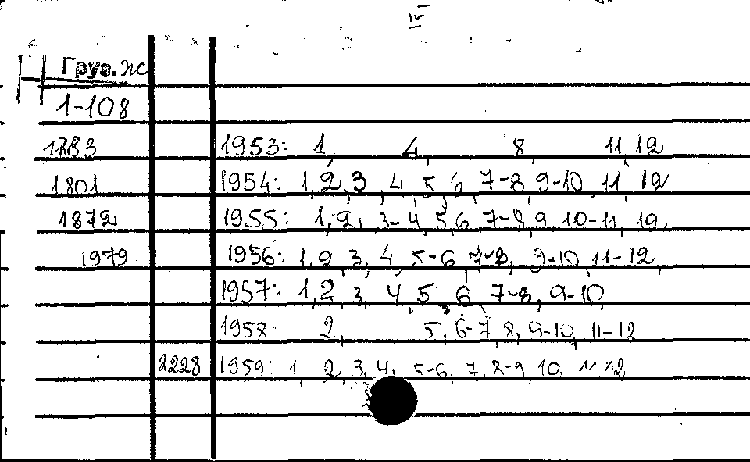 IV
Груз. жс
1-108
1783 1953: 1, 4, 8, 11, 12
1801 1954: 1, 2, 3, 4, 5, 6, 7-8, 9-10, 11, 12
1872 1955: 1, 2, 3-4, 5, 6, 7-8, 9, 10-11, 12,
1979 1956: 1, 2, 3, 4, 5-6, 7-8, 9-10, 11-12,
1957: 1, 2, 3, 4, 5, 6, 7-8, 9-10
1958: 2, 5, 6-7, 8, 9-10, 11-12
2228 1959: 1, 2, 3, 4, 5-6, 7, 8-9, 10, 11, 12